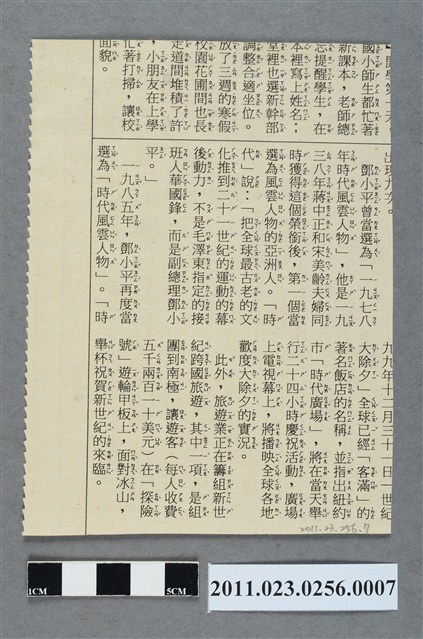 國小師生都忙著
新課本，老師總
忘提醒學生，在
本裡寫上姓名；
堂裡也選新幹部
調整合適坐位。
放了三週的寒假
校園花圃間也長
走道間堆積了許
，小朋友在上學
忙著打掃，讓校
面貌。
出現九次。
鄧小平曾當選為「一九七八
年時代風雲人物」，他是一九
三八年蔣中正和宋美齡夫婦同
時獲得這個榮銜後，第一個當
選為風雲人物的亞洲人。「時
代」說：「把全球最古老的文
化推到二十一世紀的運動的幕
後動力，不是毛澤東指定的接
班人華國鋒，而是副總理鄧小
平。」
一九八五年，鄧小平再度當
選為「時代風雲人物」。「時
九九年十二月三十一日一世紀
大除夕，全球已經「客滿」的
著名飯店的名稱，並指出紐約
市「時代廣場」，將在當天舉
行二十四小時慶祝活動，廣場
上電視幕上，將播映全球各地
歡度大除夕的實況。
此外，旅遊業正在籌組新世
紀跨國旅遊，其中一項，是組
團到南極，讓遊客（每人收費
五千兩百一十美元）在「探險
號」遊輪甲板上，面對冰山，
舉杯祝賀新世紀的來臨。
2011.23.256.7
1CM 5CM
2011.023.0256.0007